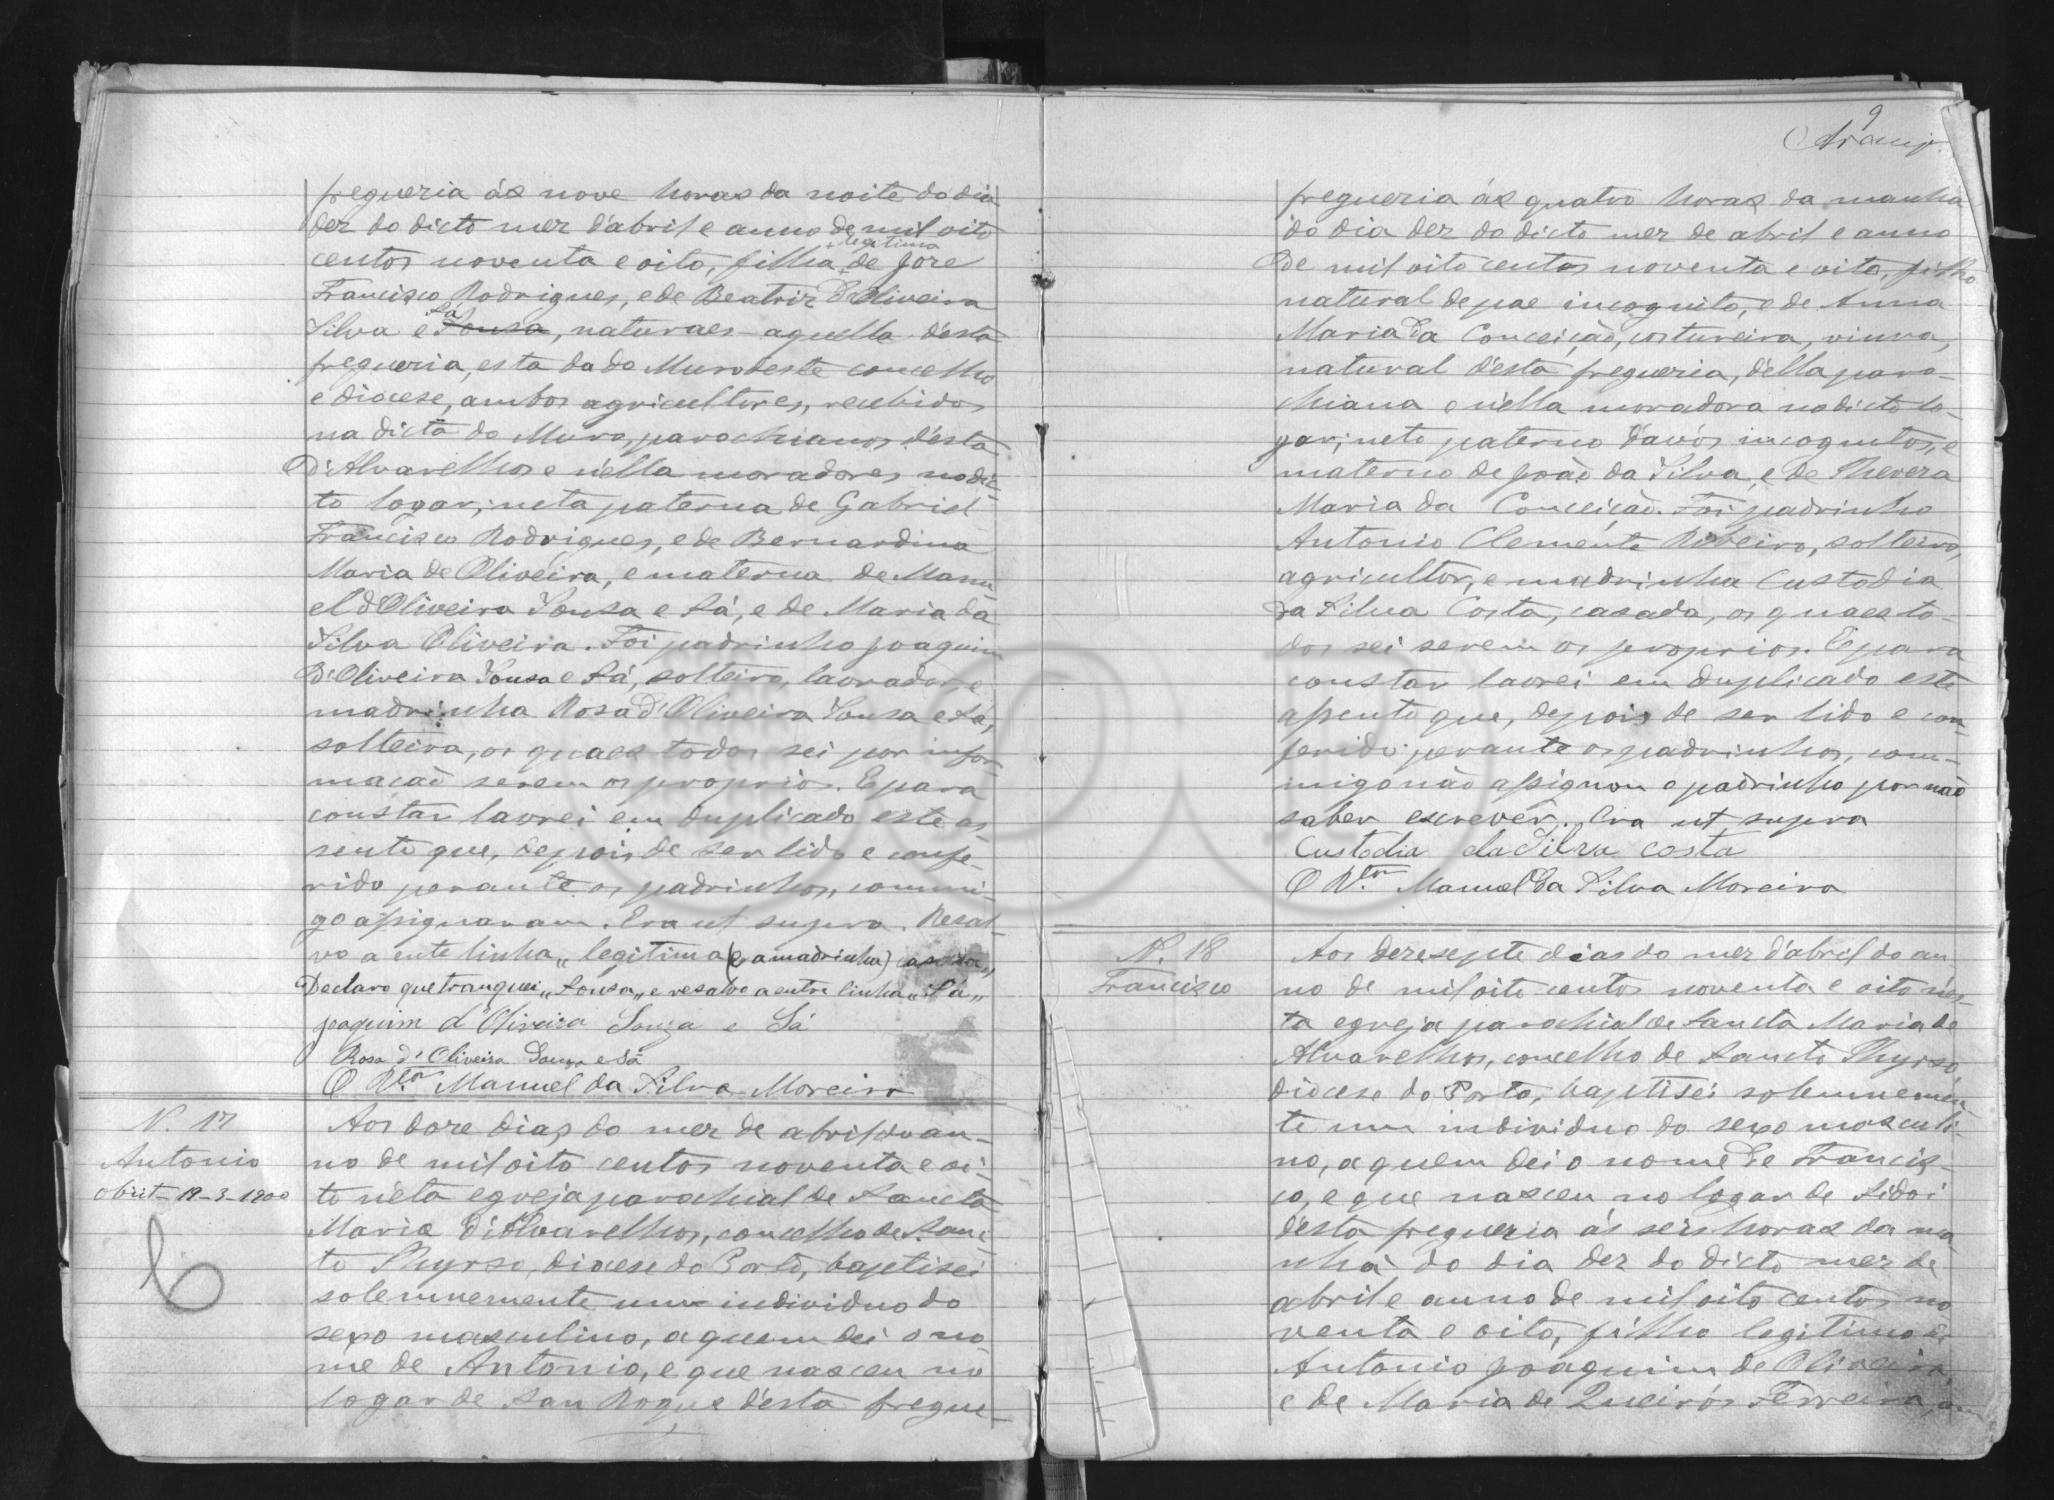 freguezia ás nove horas da noite do dia
dez do dicto mez d'abril e anno de mil oito
+ legitima
centos noventa e oito, filha + de José
Francisco Rodrigues, e de Beatriz d'Oliveira
Sá
Silva e Sousa, naturaes aquelle d'esta
freguezia, esta da do Muro d'este concelho
e diocese, ambos agricultores, recebidos
na dicta do Muro, parochianos d'esta
d'Alvarelhos e n'ella moradores no dic-
to logar; neta paterna de Gabriel
Francisco Rodrigues, e de Bernardina
Maria de Oliveira, e materna de Manu
el d'Oliveira Sousa e Sá, e de Maria da
Silva Oliveira. Foi padrinho Joaquim
d'Oliveira Sousa e Sá, solteiro, lavrador, e
madrinha Rosa d'Oliveira Sousa e Sá,
solteira, os quaes todos sei por infor-
mação serem os proprios. E para
constar lavrei em duplicado este as
sento que, depois de ser lido e confe-
rido perante os padrinhos, commi-
go assignaram. Era ut supra. Resal-
vo a ente linha „ legitima (e a madrinha)
Declaro que tranquei „Sousa„ e resalvo a entre linha „Sá„
Joaquim d'Oliveira Souza e Sá
Rosa d'Oliveira Souza e Sá
O R.tor Manuel da Silva Moreira
N. 17
Antonio
obiit - 19-3-1900
Aos doze dias do mez de abril do an-
no de mil oito centos noventa e oi-
to n'esta egreja parochial de Sancta
Maria d'Alvarelhos, concelho de Sanc
to Thyrso, diocese do Porto, baptisei
solemnemente um individuo do
sexo masculino, a quem dei o no
me de Antonio, e que nasceu no
logar de San Roque d'esta fregue-
9
Araujo
freguezia ás quatro horas da manhã
do dia dez do dicto mez de abril e anno
de mil oito centos noventa e oito, filho
natural de pae incognito, e de Anna
Maria da Conceição, costureira, viuva,
natural d'esta freguezia, d'ella paro-
chiana e n'ella moradora no dicto lo-
gar; neto paterno d'avós incognitos, e
materno de João da Silva, e de Thereza
Maria da Conceição. Foi padrinho
Antonio Clemente Ribeiro, solteiro,
agricultor, e madrinha Custodia
da Silva Costa, casada, os quaes to-
dos sei serem os proprios. E para
constar lavrei em duplicado este
assento que, depois de ser lido e con-
ferido perante os padrinhos, com-
migo não assignou o padrinho por não
saber escrever. Era ut supra
Custodia da Silva Costa
O R.tor Manuel da Silva Moreira
N. 18
Francisco
Aos dezesepte dias do mez d'abril do an
no de mil oito centos noventa e oito n'es-
ta egreja parochial de Sancta Maria de
Alvarelhos, concelho de Sancto Thyrso
diocese do Porto, baptisei solemnemen-
te um individuo do sexo masculi-
no, a quem dei o nome de Francis-
co, e que nasceu no logar de Sidoi
d'esta freguezia ás seis horas da ma-
nhã do dia dez do dicto mez de
abril e anno de mil oito centos no
venta e oito, filho legitimo de
Antonio Joaquim de Oliveira,
e de Maria de Queirós Ferreira,